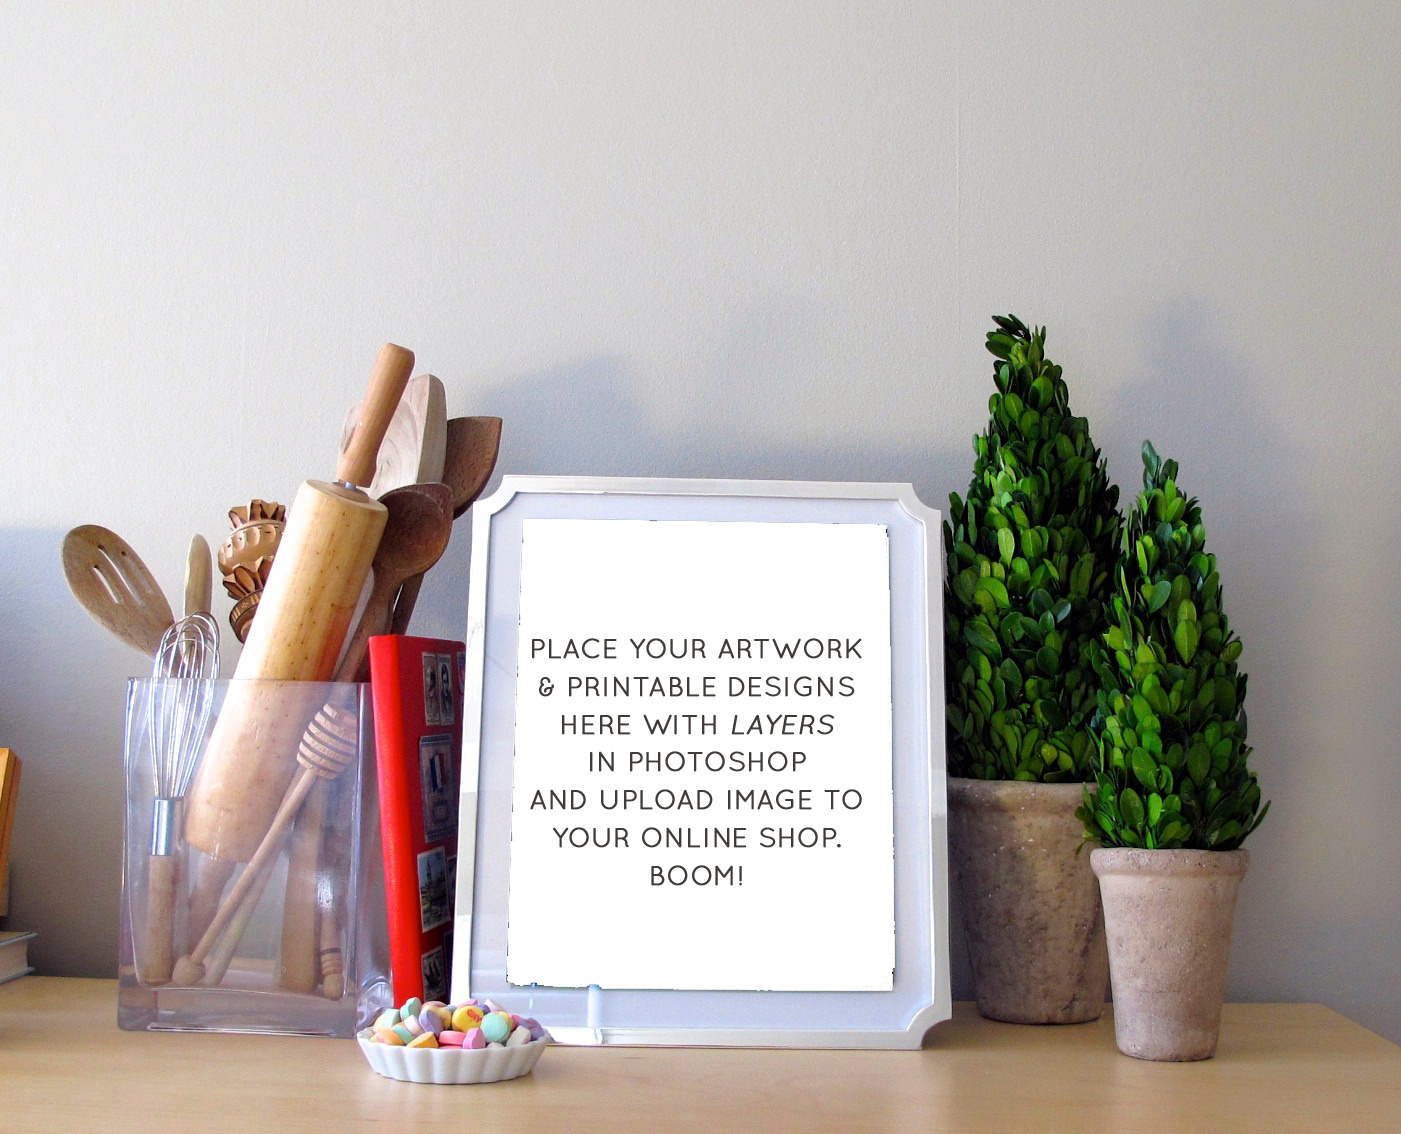 PLACE YOUR ARTWORK
& PRINTABLE DESIGNS
HERE WITH LAYERS
IN PHOTOSHOP
AND UPLOAD IMAGE TO
YOUR ONLINE SHOP.
BOOM!